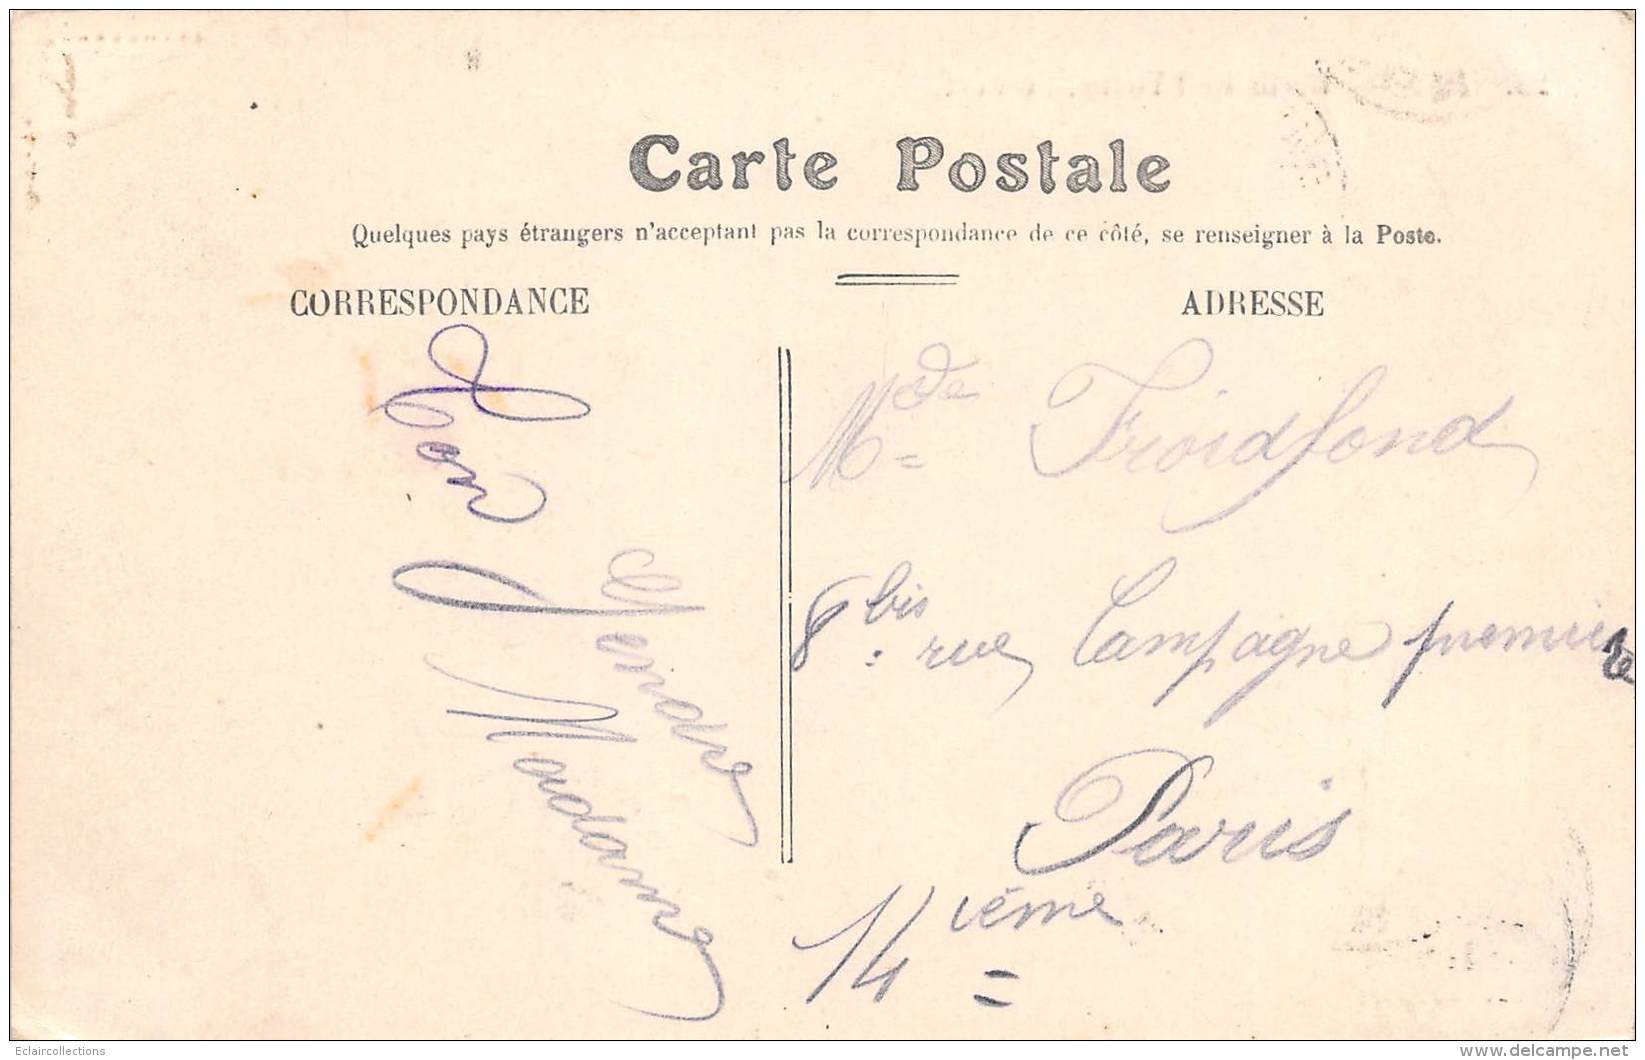 Carte Postale
Quelques pays étrangers n'acceptant pas la correspondance de ce côté, se renseigner à la Poste.
CORRESPONDANCE
ADRESSE
Bon
Gendre
Madame
Mde Froidfond
8 bis rue Campagne première
Paris
14 ième
Eclaircollections
delcampe.net